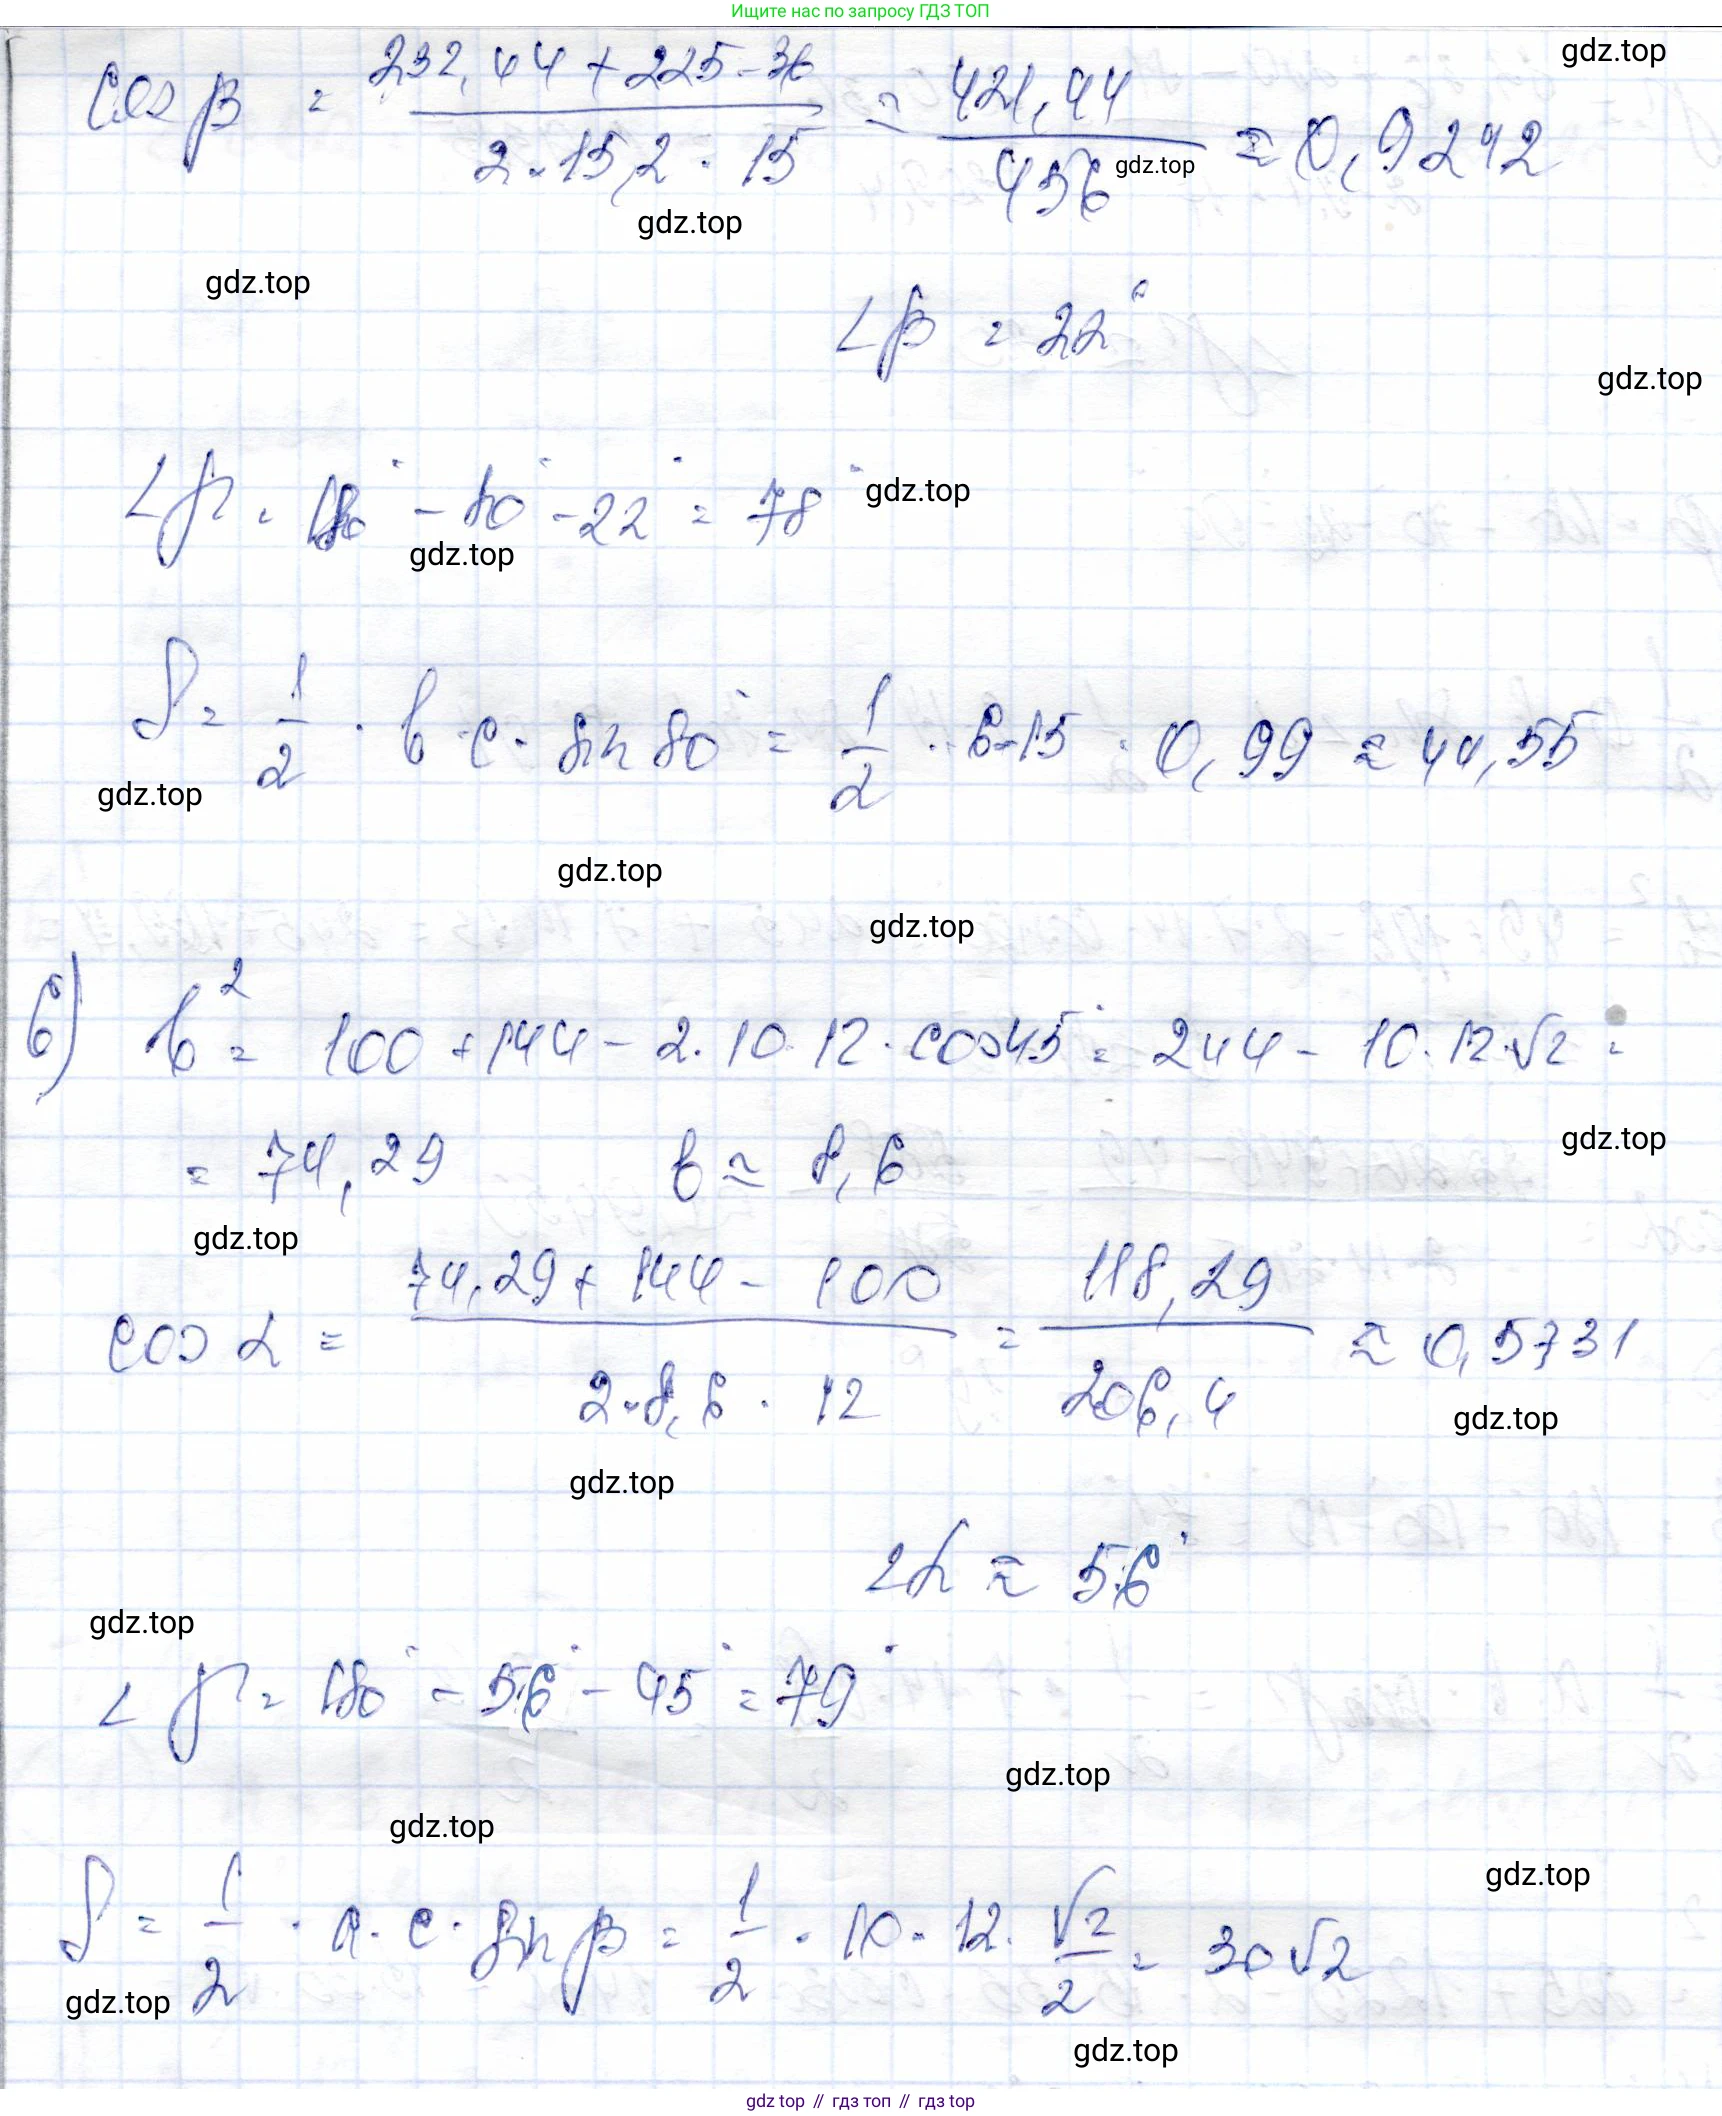 Ищите нас по запросу ГДЗ ТОП
gdz.top
cos β = (232,44 + 225 - 36)/(2 · 15,2 · 15) ≈ 421,44/456 ≈ 0,9242
gdz.top
gdz.top
gdz.top
∠β = 22°
gdz.top
∠γ = 180° - 80° - 22° = 78°
gdz.top
gdz.top
S = 1/2 · b · c · sin 80° = 1/2 · 6 · 15 · 0,99 ≈ 44,55
gdz.top
gdz.top
gdz.top
б) b² = 100 + 144 - 2 · 10 · 12 · cos 45° = 244 - 10 · 12 · √2 =
gdz.top
= 74,29 b ≈ 8,6
gdz.top
cos α = (74,29 + 144 - 100)/(2 · 8,6 · 12) = 118,29/206,4 ≈ 0,5731
gdz.top
gdz.top
∠α ≈ 56°
gdz.top
∠γ = 180° - 56° - 45° = 79°
gdz.top
gdz.top
gdz.top
S = 1/2 · a · c · sin β = 1/2 · 10 · 12 · √2/2 = 30√2
gdz.top
gdz.top
gdz top // гдз топ // гдз top